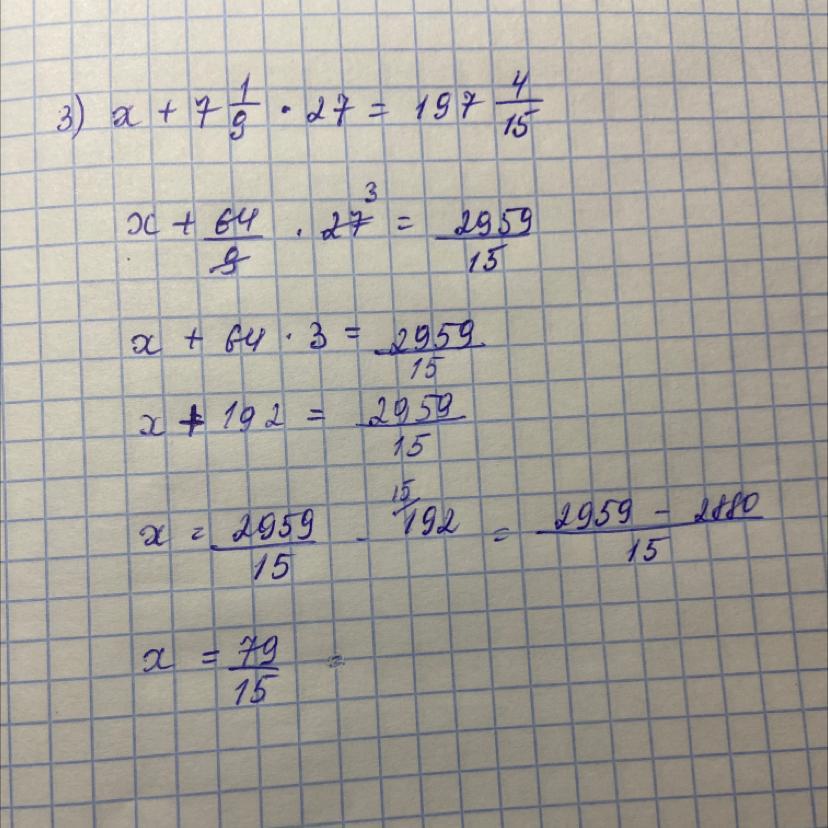 3) x + 7 1/9 · 27 = 197 4/15
x + 64/9 · 27 3 = 2959/15
x + 64 · 3 = 2959/15
x + 192 = 2959/15
x = 2959/15 - 15/ 192 = 2959 - 2880/15
x = 79/15 =